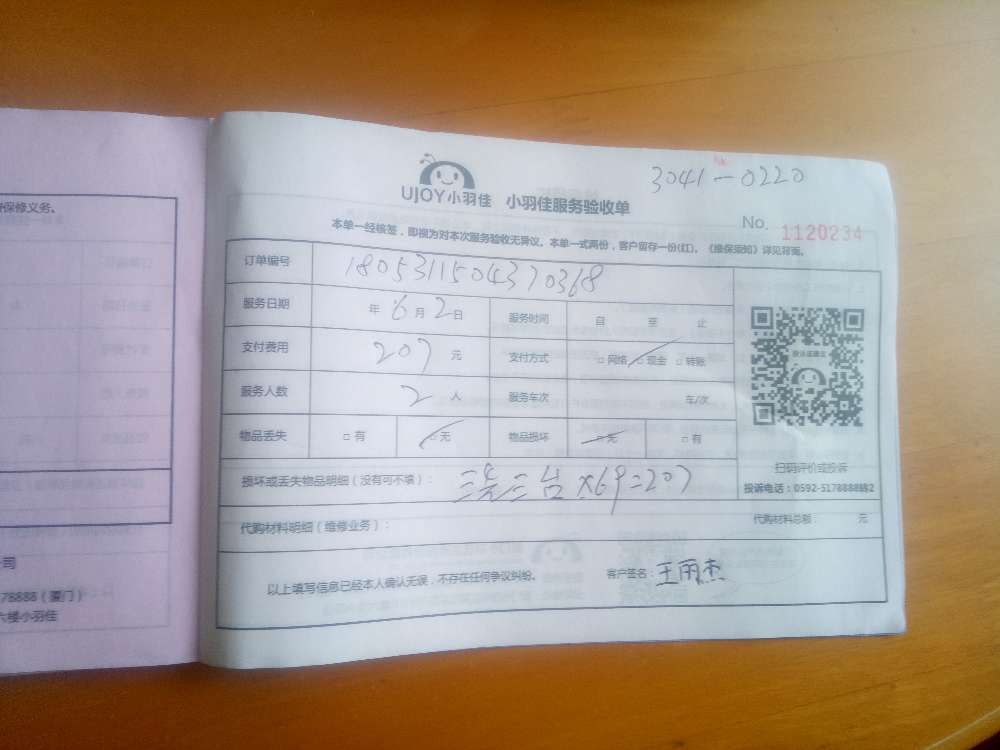 保修义务。
司
78888（厦门）
六楼小羽佳
3041-0220
UJOY小羽佳 小羽佳服务验收单
No. 1120234
本单一经核签，即视为对本次服务验收无异议。本单一式两份，客户留存一份(红)。《维保须知》详见背面。
订单编号 1805311504370368
服务日期 年 6月2日 服务时间 自 至 止
支付费用 207 元 支付方式 □网络 □现金 □转账
服务人数 2 人 服务车次 车/次
物品丢失 □有 □无 物品损坏 □无 □有
扫码评价或投诉
投诉电话：0592-5178888转2
损坏或丢失物品明细（没有可不填）： 三台×69=207
代购材料明细（维修业务）： 代购材料总额： 元
以上填写信息已经本人确认无误，不存在任何争议纠纷。 客户签名：王丽杰